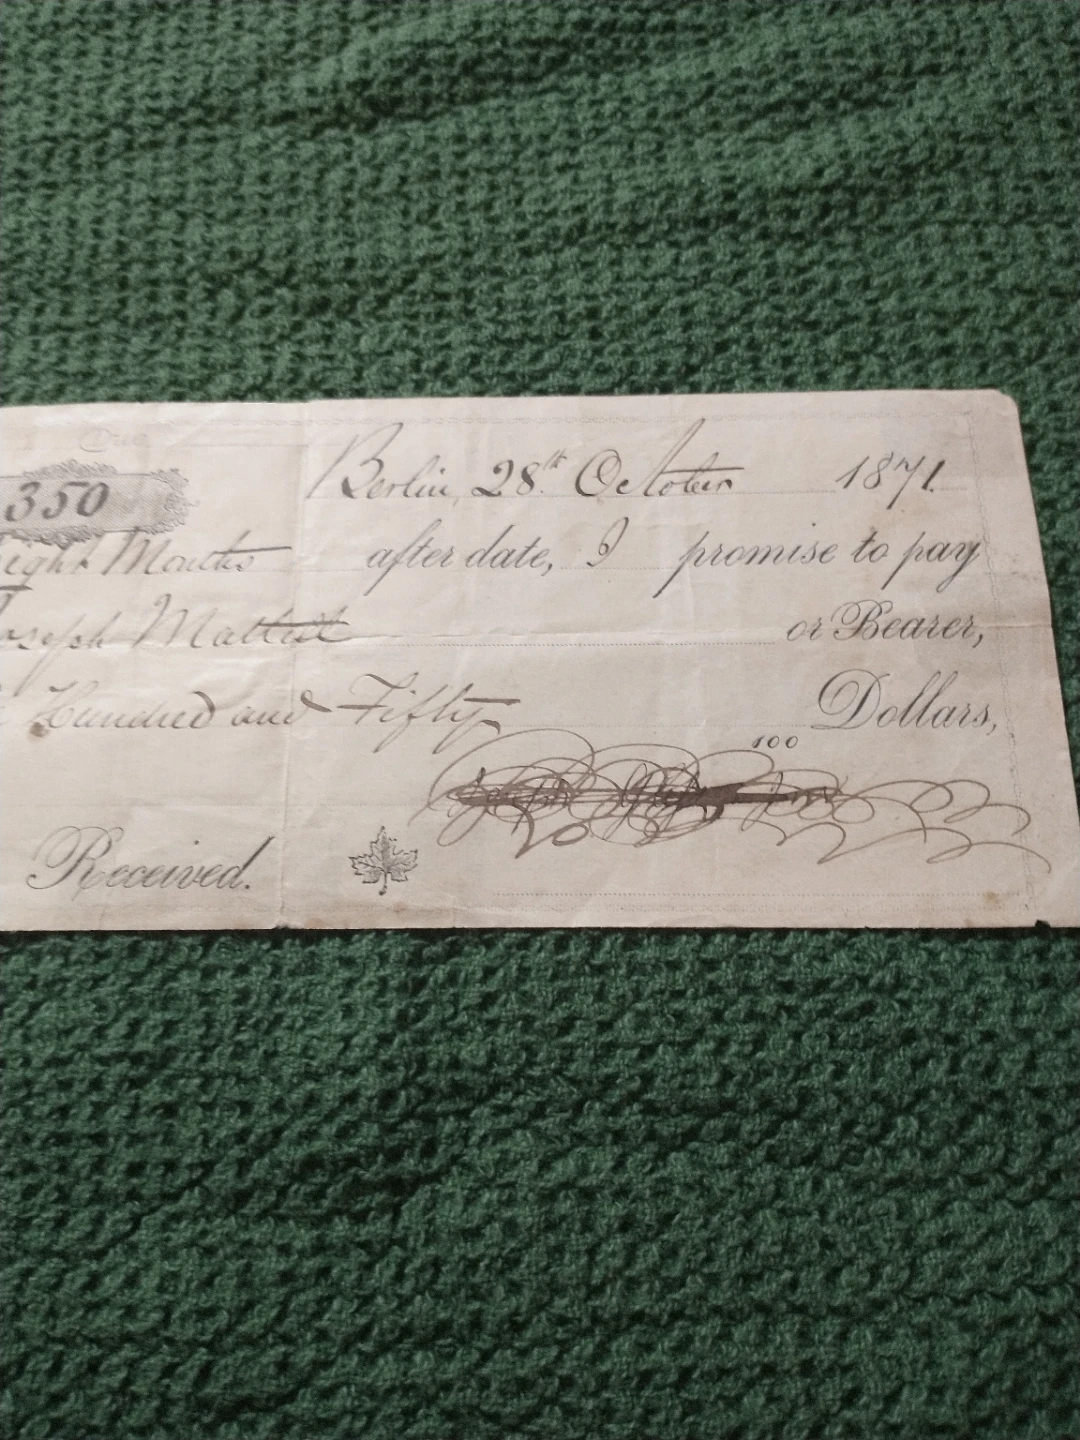 Due
350
Berlin, 28th October 1871.
Eight Months after date, I promise to pay
Joseph or Bearer,
Hundred and Fifty Dollars,
100
Received.